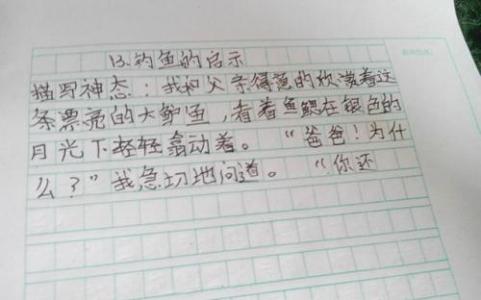 13.钓鱼的启示
描写神态：我和父亲得意的欣赏着这
条漂亮的大鲈鱼，看着鱼鳃在银色的
月光下轻轻翕动着。“爸爸！为什
么？”我急切地问道。“你还